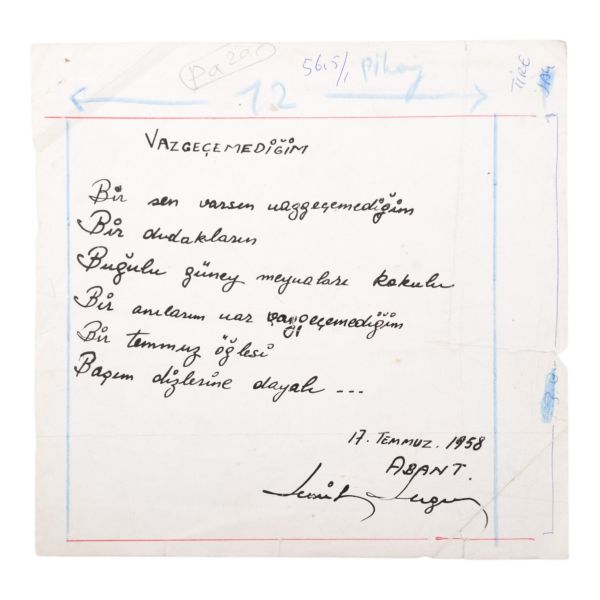 paza
56,5/1 pikaj
12
TİRE
VAZGEÇEMEDİĞİM
Bir sen varsın vazgeçemediğim
Bir dudakların
Buğulu güney meyvaları kokulu
Bir anıların var vazgeçemediğim
Bir temmuz öğlesi
Başım dizlerine dayalı ...
17. TEMMUZ. 1958
ABANT.